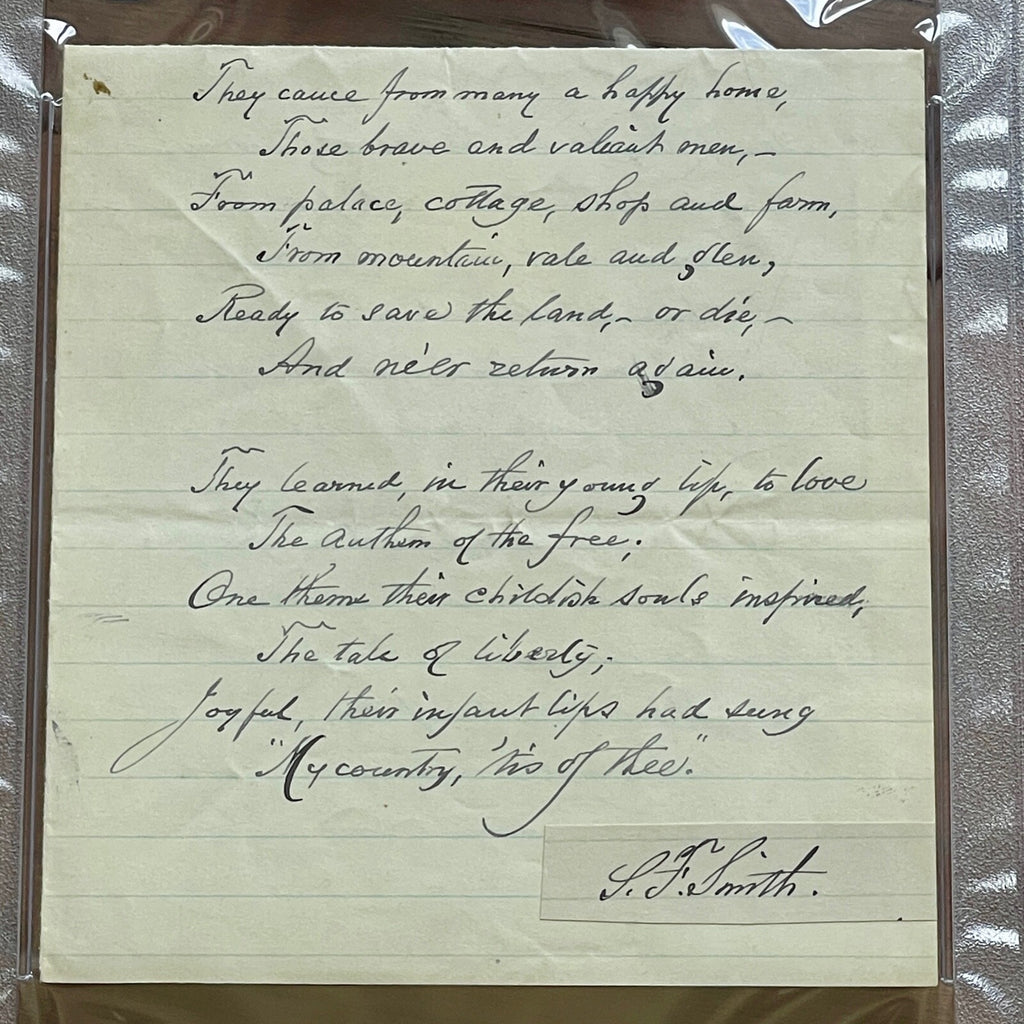 They came from many a happy home,
Those brave and valiant men, –
From palace, cottage, shop and farm,
From mountain, vale and glen,
Ready to save the land, – or die, –
And ne'er return again.
They learned, in their young life, to love
The anthem of the free;
One theme their childish souls inspired,
The tale of liberty;
Joyful, their infant lips had sung
"My country, 'tis of thee."
S. F. Smith.